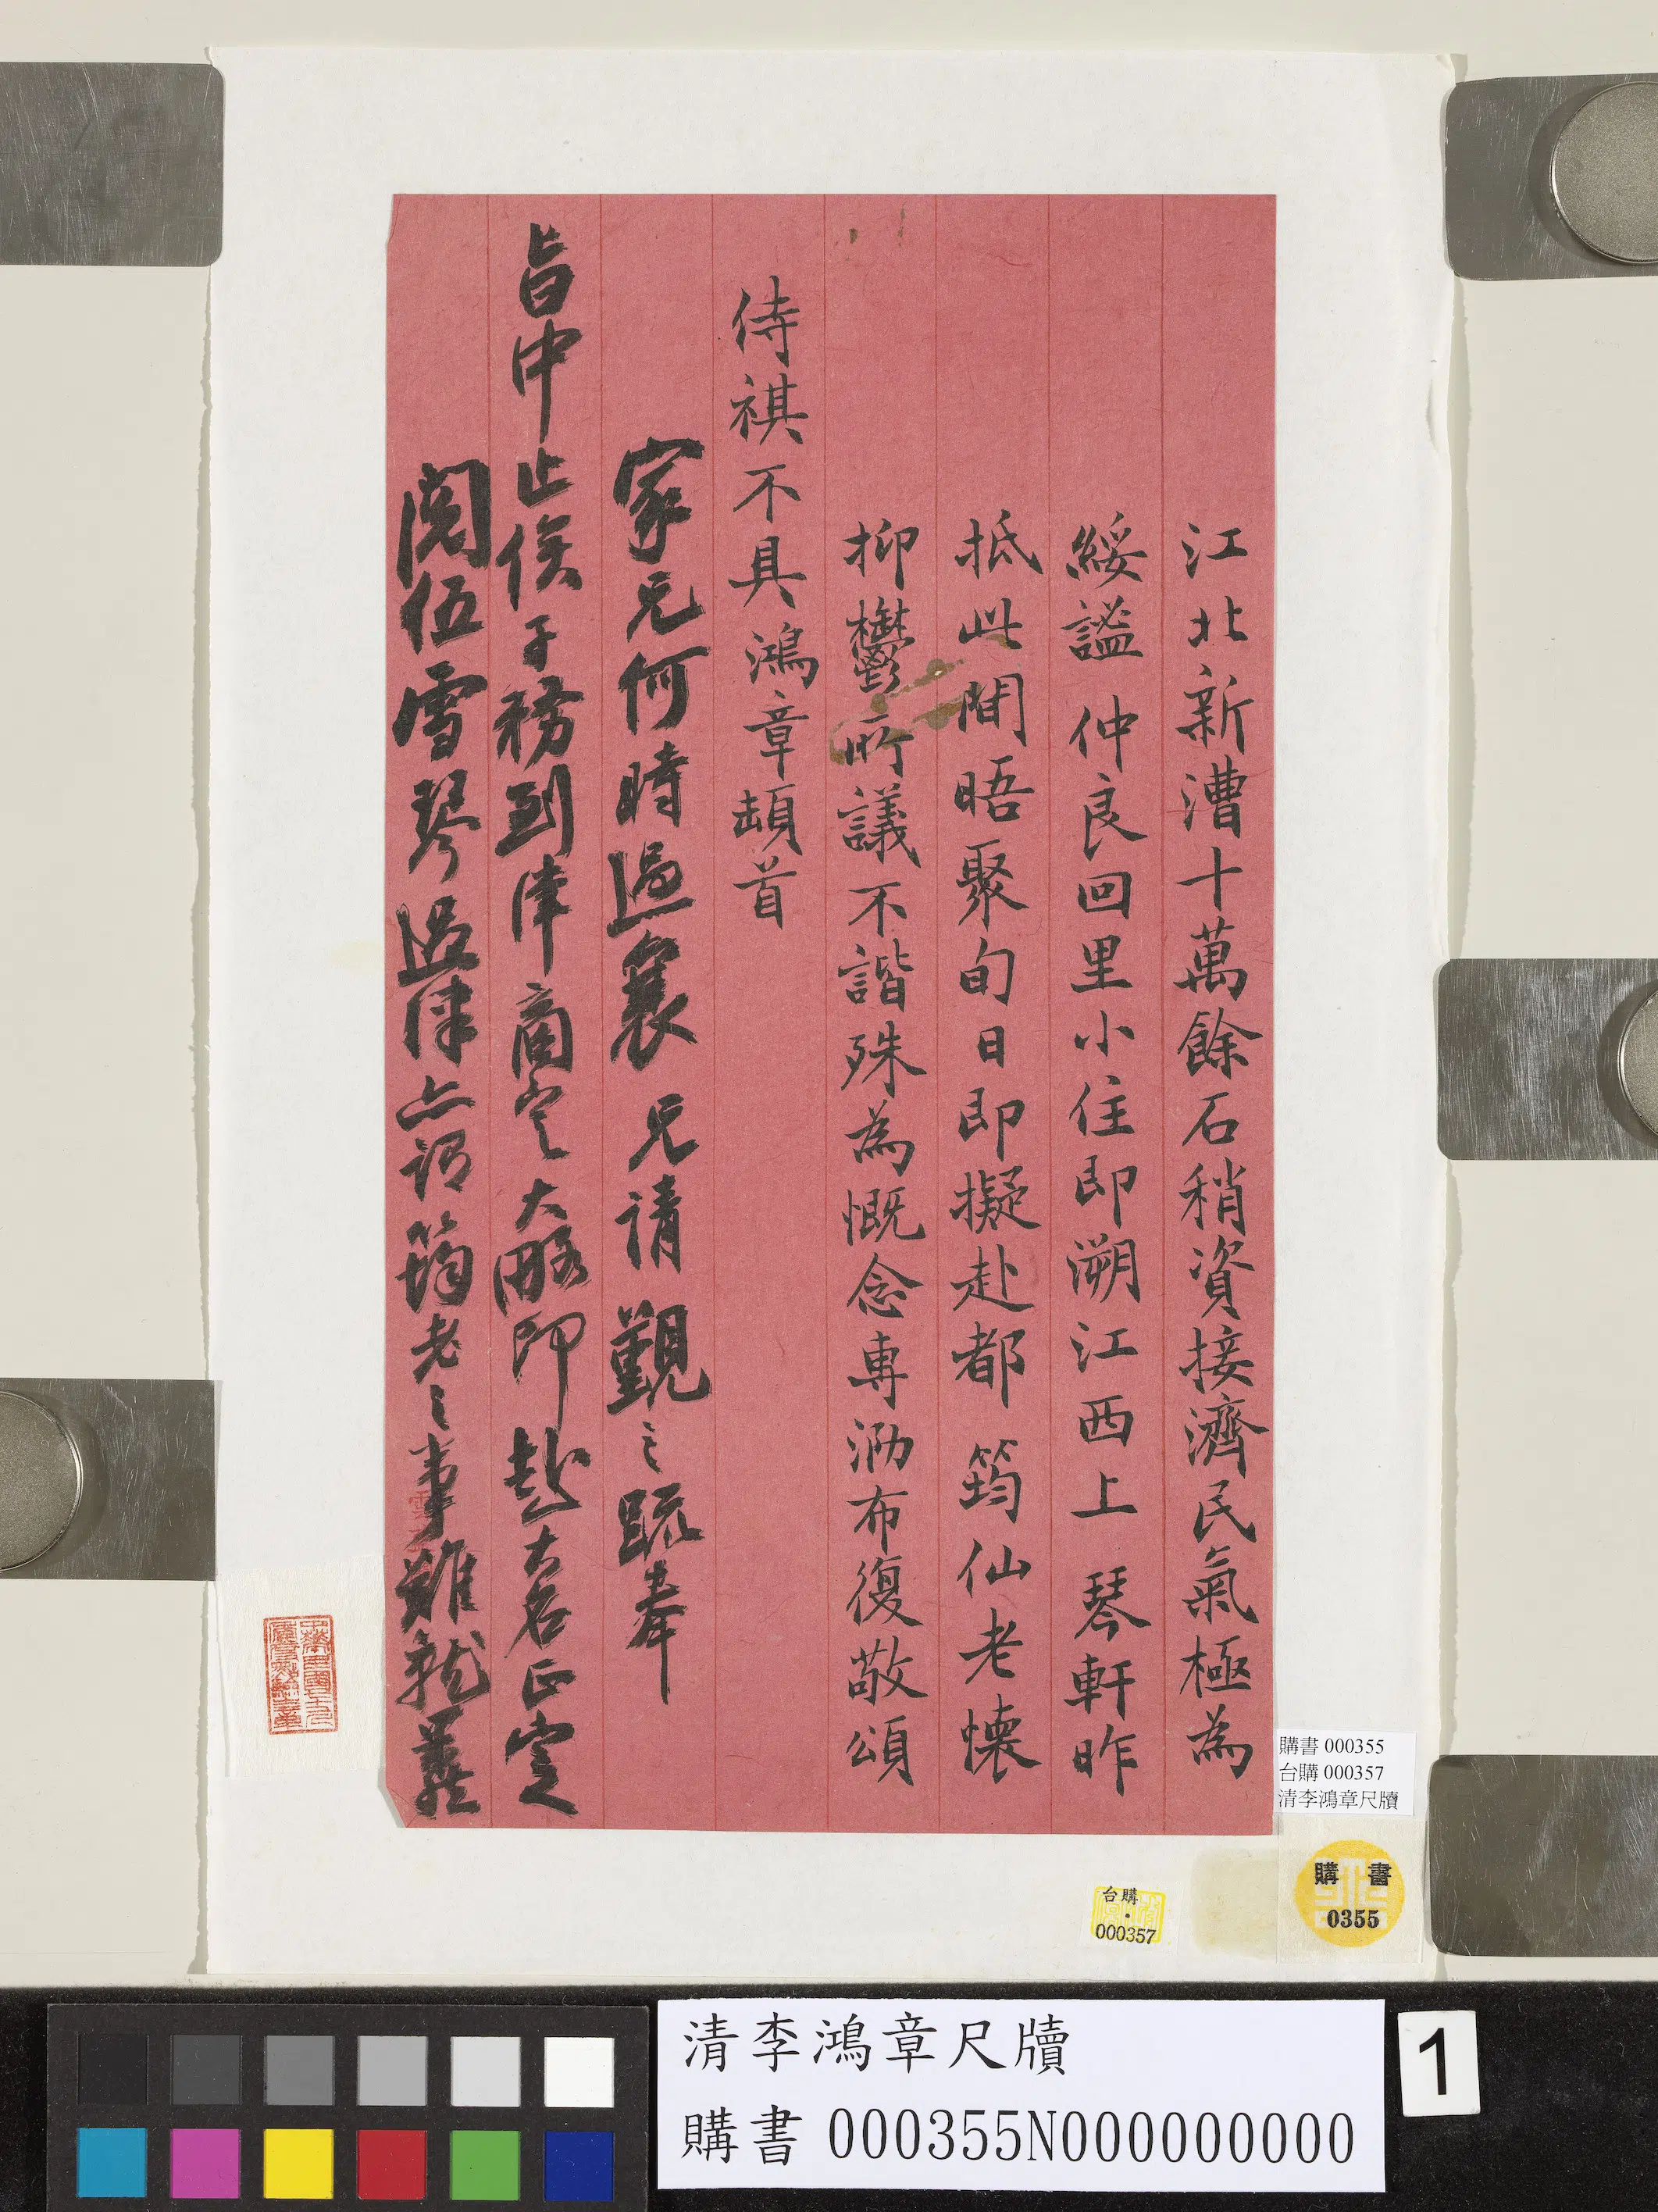 江北新漕十萬餘石稍資接濟民氣極為
綏謐仲良回里小住即溯江西上琴軒昨
抵此間晤聚旬日即擬赴都筠仙老懷
抑鬱所議不諧殊為慨念專泐布復敬頌
侍祺不具鴻章頓首
家兄何時過襄兄請覲之疏奉
旨中止俟子務到津商定大略即赴大名正定
閱伍雪琴過津亦謂筠老之事難就義
購書 000355
台購 000357
清李鴻章尺牘
購書
0355
台購
000357
清李鴻章尺牘
購書 000355N000000000
1